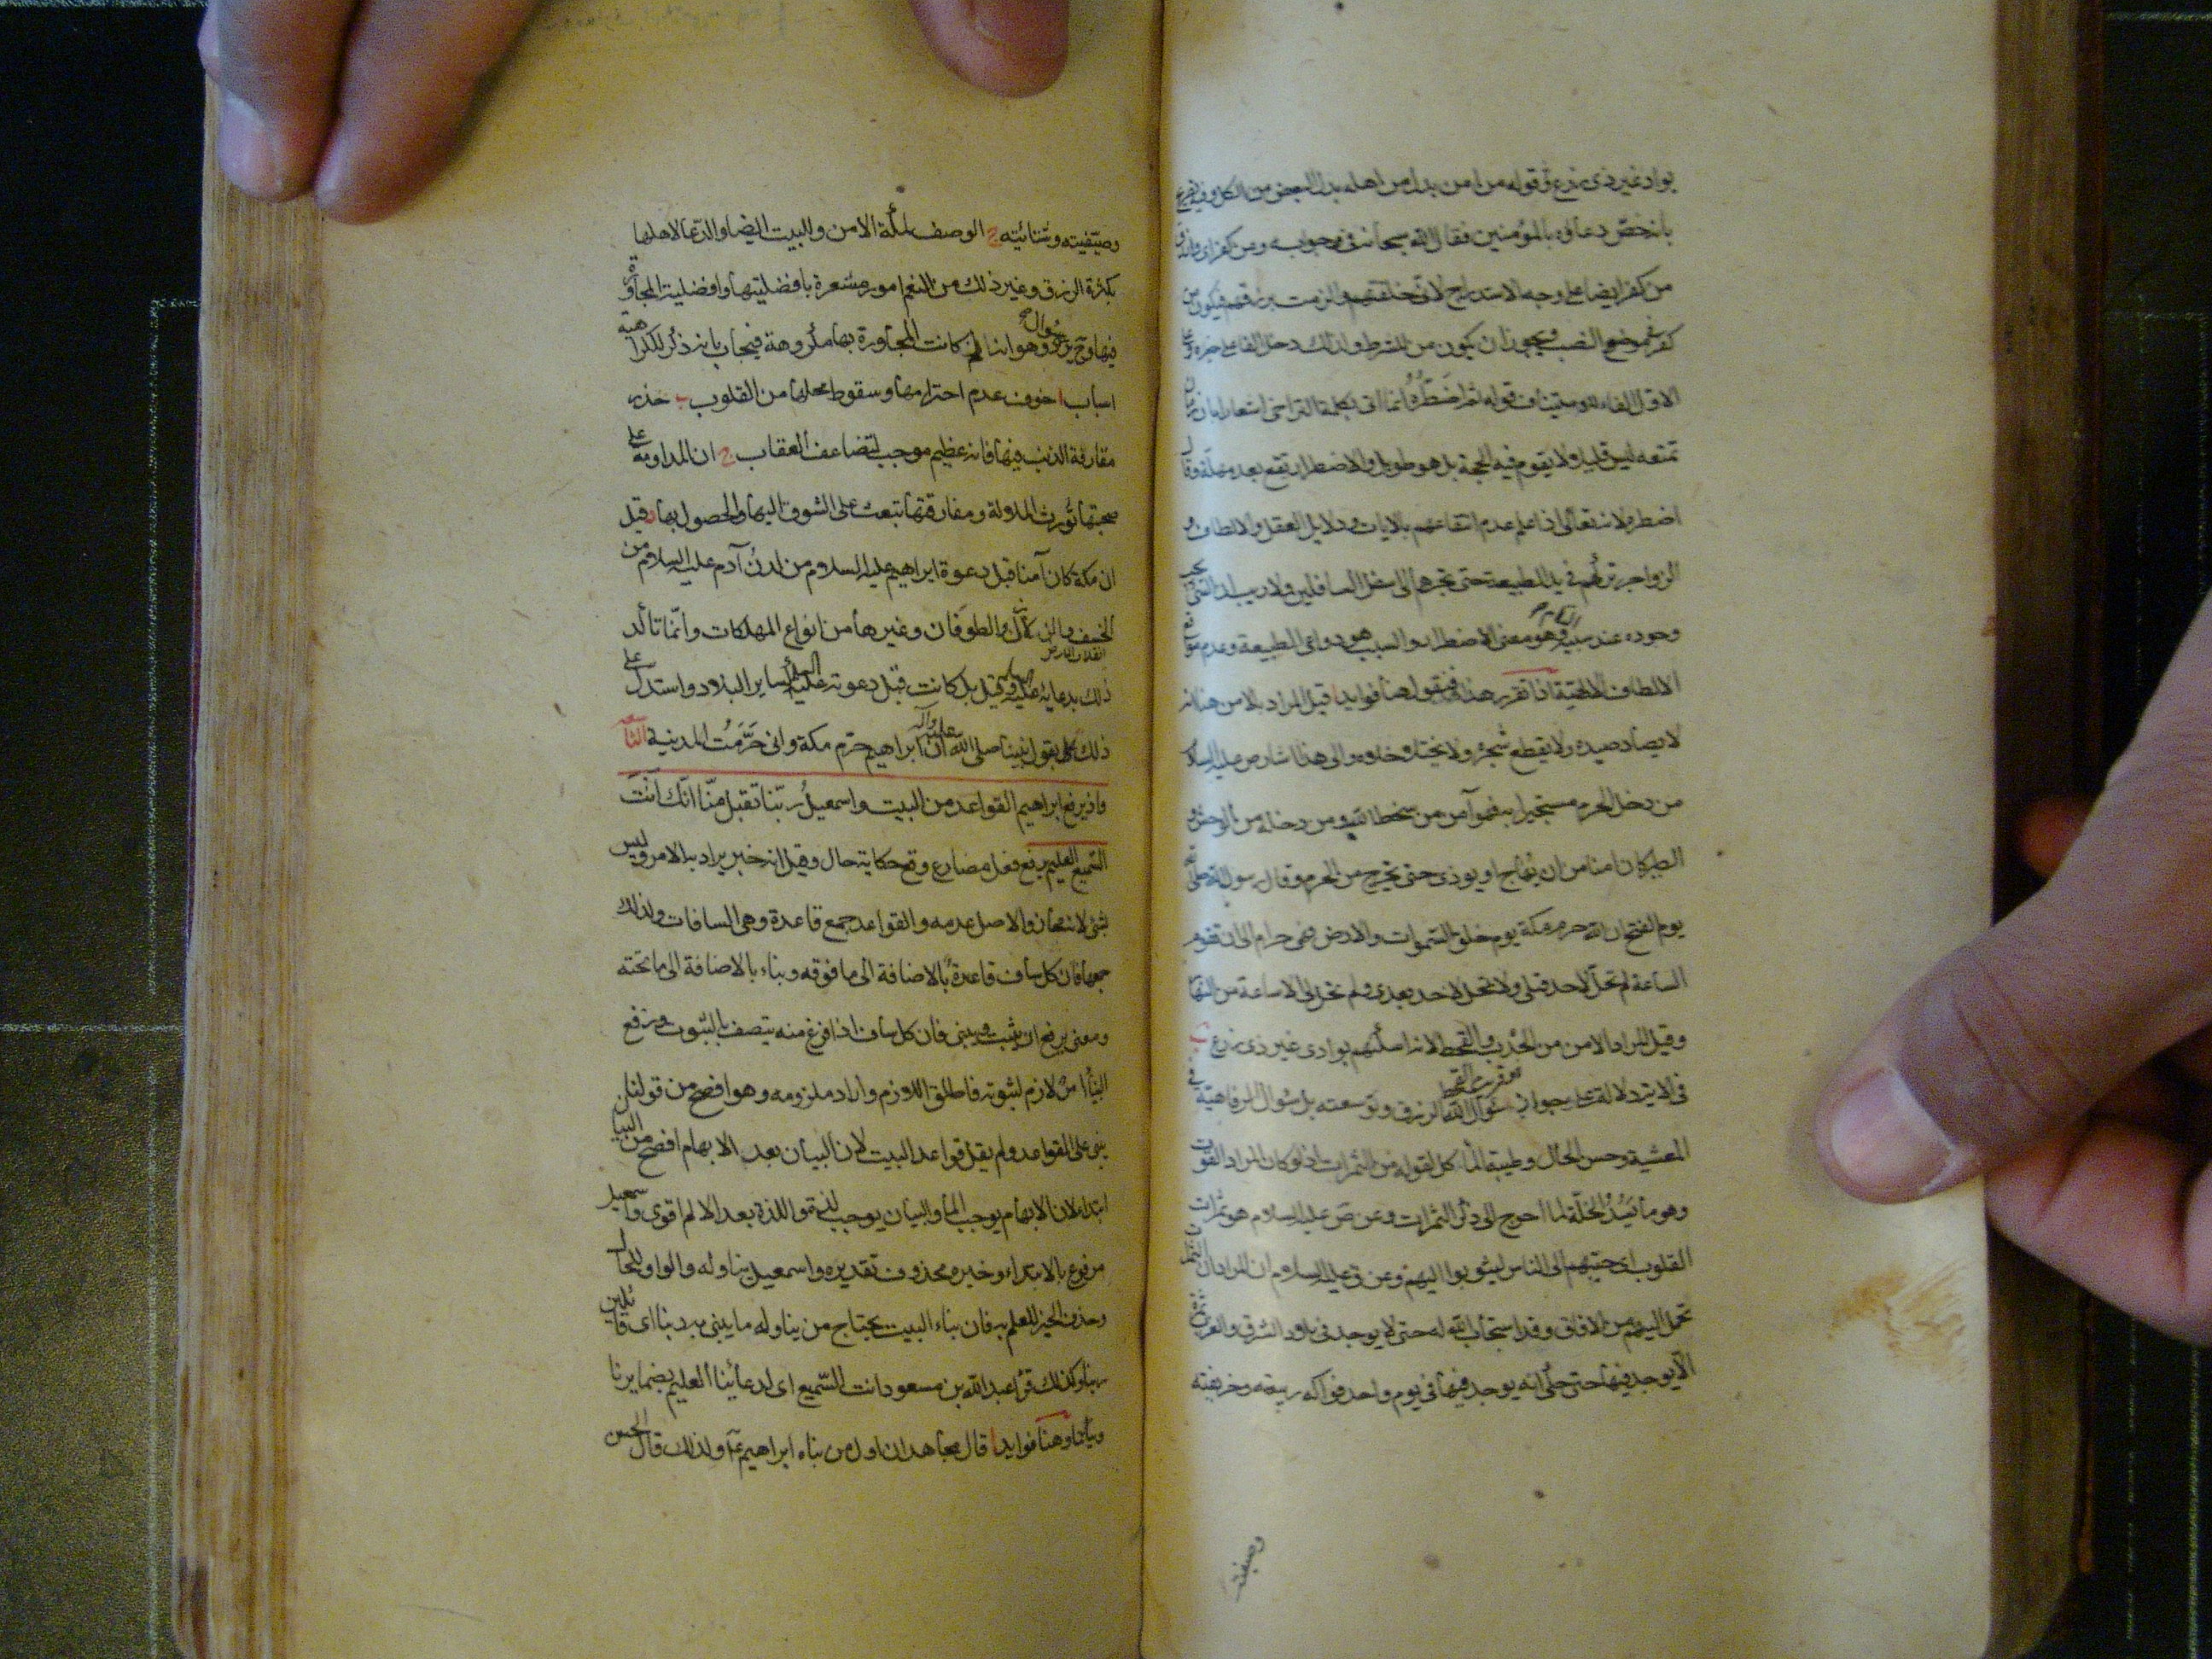 بواد غير ذى زرع وقوله من امن بدل من اهله بدل البعض من الكل وفيه
بانه خصّ دعاؤه بالمؤمنين فقال الله سبحانه فى جوابه ومن كفر اى وارزق
من كفر ايضا على وجه الاستدراج لانى خلقتهم والزمت برزقهم فيكون من
كفر فى موضع النصب ويجوز ان يكون من للشرط ولذلك دخل الفاء على خبره وعلى
الاول الفاء للاستيناف قوله ثم اضطره انما اتى بكلمة التراخى اشعارا بان زمان
تمتعه ليس قليلا ولا يقوم فيه الحجة بل هو طويل والاضطرار يقع بعد مهلة وقال
اضطر ولانه تعالى اذا علم عدم انتفاعهم بالايات ودلايل العقل والالطاف و
الزواجر تركهم فى يد الطبيعة حتى تجرهم الى اسفل السافلين ولا ريب ان الشئ يجب
وجوده عند سببه وهو معنى الاضطرار والسبب هو دواعى الطبيعة وعدم موانع
الالطاف الالهية اذا تقرر هذا فنقول هنا فوايد ا قيل المراد بالامن هنا انه
لا يصاد صيده ولا يقطع شجره ولا يختلا خلاوه والى هذا اشار ص عليه السلام
من دخل الحرم مستجيرا به فهو آمن من سخط الله ومن دخله من الوحش و
الطير كان امنا من ان يهاج او يوذى حتى يخرج من الحرم وقال رسول الله صلى
يوم الفتح ان الله حرم مكة يوم خلق السموات والارض فهى حرام الى ان تقوم
الساعة لم تحل لاحد قبلى ولا تحل لاحد بعدى ولم تحل لى الا ساعة من النهار
وقيل المراد الامن من الجدب والقحط لانه اسكنهم بوادى غير ذى زرع ب
فى الاية دلالة على جواز سؤال الله الرزق وتوسعته بل سؤال الرفاهية فى
المعيشة وحسن الحال وطيبة المأكل لقوله من الثمرات اذ لو كان المراد القوت
وهو ما يسد الخلة لما احوج الى ذكر الثمرات وعن ص عليه السلام هو ثمرات
القلوب اى حببهم الى الناس ليثوبوا اليهم وعن ق عليه السلام ان المراد ان الثمرات
تحمل اليهم من الافاق وقد استجاب الله له حتى لا يوجد فى بلاد الشرق والغرب ثمرة
الا يوجد فيها حتى حكى انه يوجد فيها فى يوم واحد فواكه ربيعية وخريفية
وصيفية
وصيفية وشتائية ج الوصف لمكة الامن وللبيت ايضا والدعا لاهلها
بكثرة الرزق وغير ذلك من النعم امور مشعرة بافضليتها وافضلية المجاورة
فيها وح يرد سؤال وهو انه لم كانت المجاورة بها مكروهة فيجاب بانه ذكر لكراهية
اسباب ا خوف عدم احترامها وسقوط محلها من القلوب ب حذر
مقارفة الذنب فيها فانه عظيم موجب لتضاعف العقاب ج ان المداومة على
صحبتها تورث الملالة ومفارقتها تبعث على الشوق اليها والحصول بها د قيل
ان مكة كان آمنا قبل دعوة ابراهيم عليه السلام من لدن آدم عليه السلام من
الخسف والزلازل والطوفان وغيرها من انواع المهلكات وانما تأكد
ذلك بدعايه عليه السلام وقيل بل كانت قبل دعوته عليه السلام كساير البلاد واستدل على
ذلك بقول نبينا صلى الله عليه وآله ان ابراهيم حرم مكة وانى حرمت المدينة الثالثة
واذ يرفع ابراهيم القواعد من البيت واسمعيل ربنا تقبل منا انك انت
السميع العليم يرفع فعل مضارع وقع حكاية حال وقيل انه خبر يراد به الامر وليس
بشئ لانه مجاز والاصل عدمه والقواعد جمع قاعدة وهى السافات ولذلك
جمعها فان كل ساف قاعدة بالاضافة الى ما فوقه وبناء بالاضافة الى ما تحته
ومعنى يرفع اى يثبت ويبنى فان كل ساف اذا فرغ منه يتصف بالثبوت ورفع
البناء امر لازم لثبوته فاطلق اللازم واراد ملزومه وهو افصح من قولنا
يبنى على القواعد ولم يقل قواعد البيت لان البيان بعد الابهام افصح من البيان
ابتداء لان الابهام يوجب الما والبيان يوجب لذة واللذة بعد الالم اقوى واسمعيل
مرفوع بالابتداء وخبره محذوف تقديره واسمعيل يناوله والواو للحال
وحذف الخبر للعلم به فان بناء البيت يحتاج من يناوله ما يبنى به ربنا اى قائلين
ربنا وكذلك قرأ عبد الله بن مسعود انت السميع اى لدعائنا العليم بضمايرنا
ونياتنا وهنا فوايد ا قال مجاهد ان اول من بناه ابراهيم ع ولذلك قال الحسن